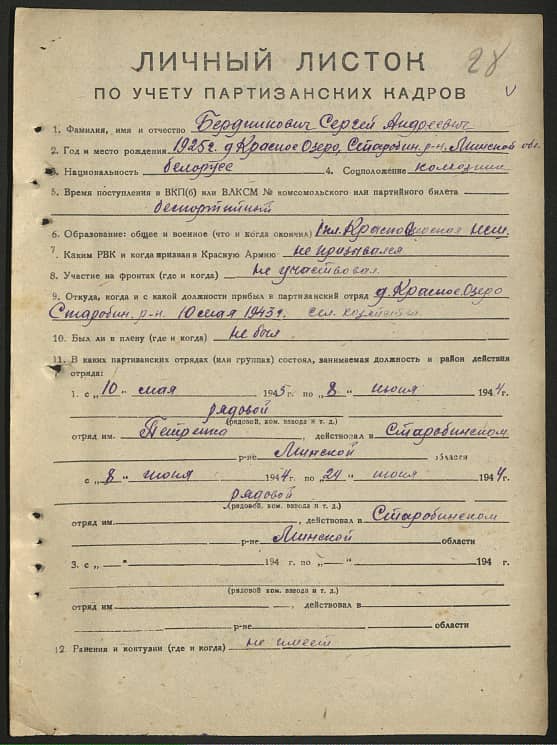 28
ЛИЧНЫЙ ЛИСТОК
ПО УЧЕТУ ПАРТИЗАНСКИХ КАДРОВ
1. Фамилия, имя и отчество Сергей Андреевич
2. Год и место рождения 1925 г. д Красное Озеро, Старобин. р-н. Минской обл.
3. Национальность белорусс 4. Соцположение колхозник
5. Время поступления в ВКП(б) или ВЛКСМ № комсомольского или партийного билета
беспартийный
6. Образование: общее и военное (что и когда окончил)
7. Каким РВК и когда призван в Красную Армию не призывался
8. Участие на фронтах (где и когда) не участвовал
9. Откуда, когда и с какой должности прибыл в партизанский отряд д. Красное Озеро
Старобин. р-н. 10 мая 1943 г.
10. Был ли в плену (где и когда) не был
11. В каких партизанских отрядах (или группах) состоял, занимаемая должность и район действия
отряда:
1. с „10" мая 1943 г. по „8" июня 1944 г.
рядовой
(рядовой, ком. взвода и т. д.)
отряд им. , действовал в Старобинском
р-не Минской области
с „8" июня 1944 г. по „24" июня 1944 г.
рядовой
(рядовой, ком. взвода и т. д.)
отряд им. , действовал в Старобинском
р-не Минской области
3. с „ " 194 г. по „ " 194 г.
(рядовой ком. взвода и т. д.)
отряд им , действовал в
р-не области
12. Ранения и контузии (где и когда) не имеет